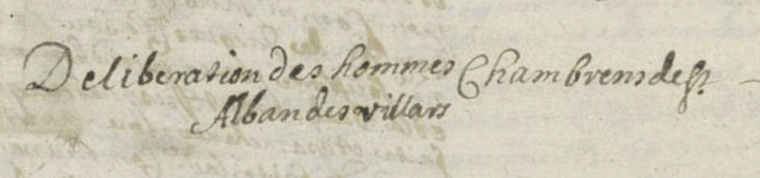 Deliberation des hommes Chambrens de st
Alban des villars